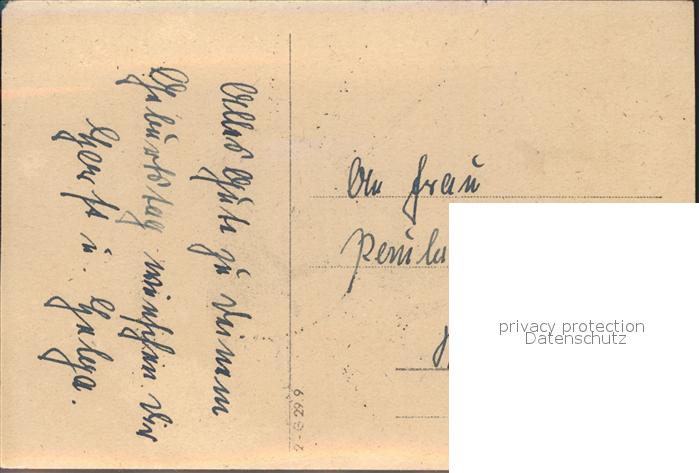 Alles Gute zu deinem
Geburtstag wünschen dir
Horst u. Helga.
An Frau
2 - G 29 9
privacy protection
Datenschutz